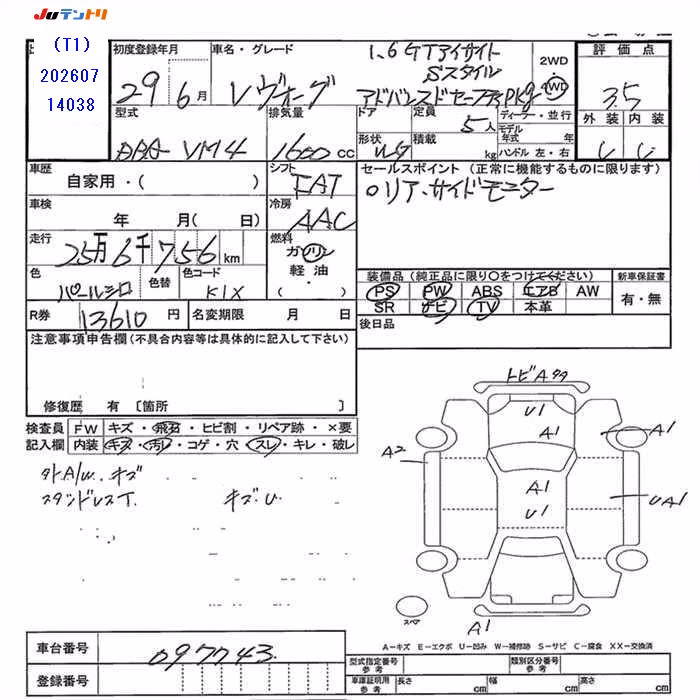 Juテントリ
(T1)
202607
14038
初度登録年月
29年6月
車名・グレード
レヴォーグ
1.6GTアイサイト
Sスタイル
アドバンスドセーフティPkg
2WD
4WD
評価点
3.5
外装 内装
型式
DBA-VM4
排気量
1600 cc
ドア
形状
WG
定員
5人
積載
kg
ディーラー・並行
モデル年式 年
ハンドル 左・右
車歴
自家用・( )
シフト
FAT
セールスポイント(正常に機能するものに限ります)
○リア、サイドモニター
車検
年 月( 日)
冷房
AAC
走行
25万6千756km
燃料
ガソリン
軽油
( )
色
パールシロ
色替
色コード
K1X
装備品(純正品に限り○をつけてください)
PS PW ABS エアB AW
SR ナビ TV 本革
新車保証書
有・無
R券
13610円
名変期限 月 日
後日品
注意事項申告欄(不具合内容等は具体的に記入して下さい)
修復歴 有 〔箇所 〕
検査員 FW キズ・飛石・ヒビ割・リペア跡・×要
記入欄 内装 キズ・汚れ・コゲ・穴・スレ・キレ・破レ
外A/W キズ
スタッドレスT. キズ、U
トビAタタ
U1
A1
A1
A2
A1
U1
UA1
A1
スペア
A-キズ E-エクボ U-凹み W-補修跡 S-サビ C-腐食 XX-交換済
車台番号
097743
登録番号
型式指定番号 参考
類別区分番号 参考
車庫証明用 参考 長さ cm 幅 cm 高さ cm